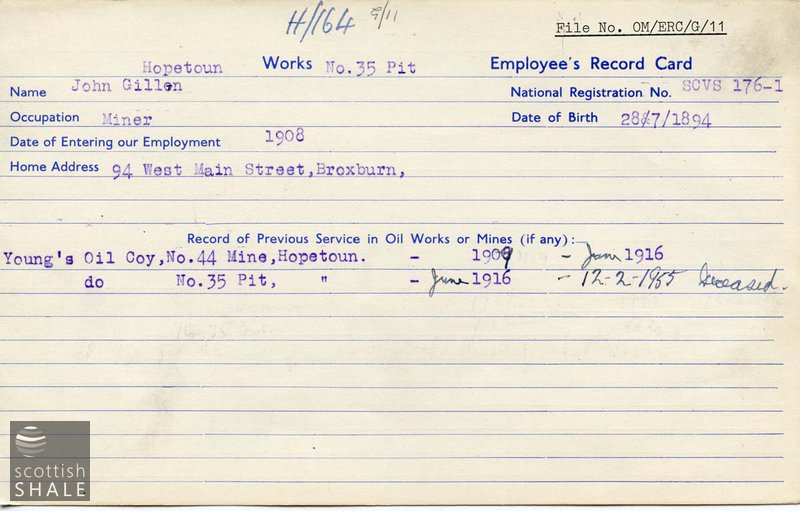 H/164 G/11
File No. OM/ERC/G/11
Hopetoun Works No.35 Pit Employee's Record Card
Name John Gillen National Registration No. SCVS 176-1
Occupation Miner Date of Birth 28/7/1894
Date of Entering our Employment 1908
Home Address 94 West Main Street,Broxburn,
Record of Previous Service in Oil Works or Mines (if any):
Young's Oil Coy,No.44 Mine,Hopetoun. - 1909 - June 1916
do No.35 Pit, " - June 1916 - 12-2-1955 Deceased.
scottish
SHALE